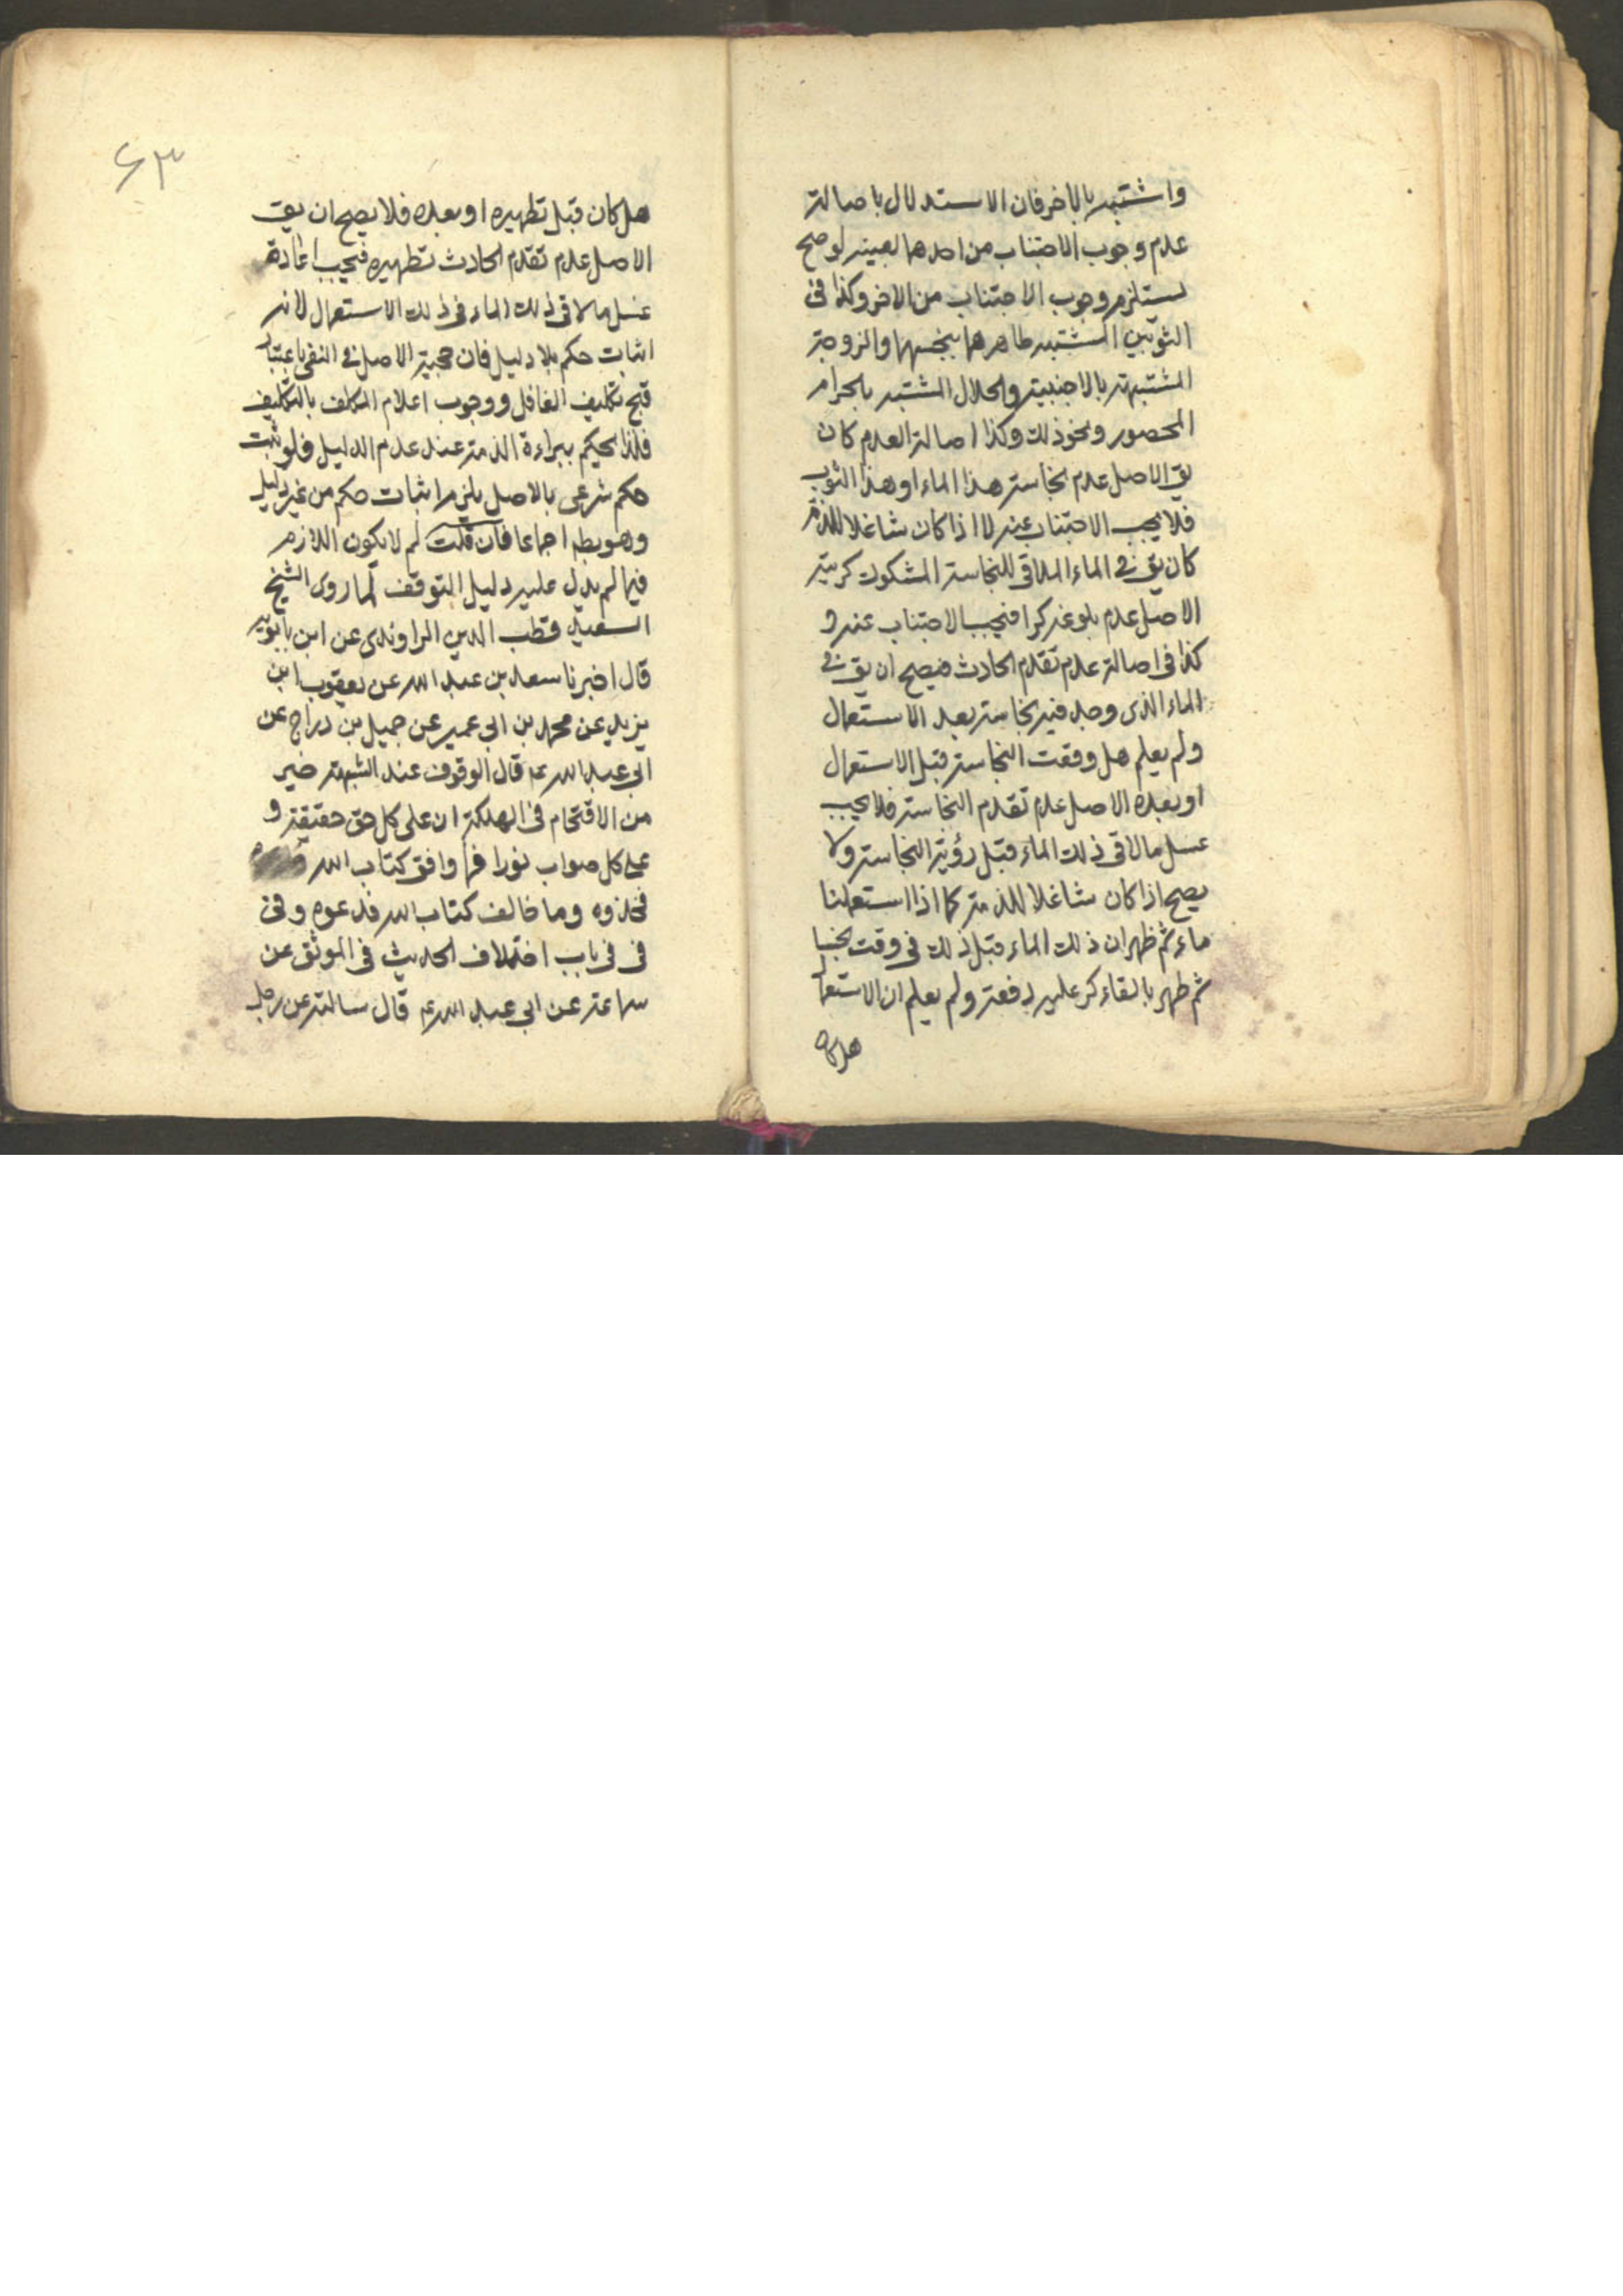 واشتبه بالاخر فان الاستدلال باصالة
عدم وجوب الاجتناب من احدهما بعينه لو صح
يستلزم وجوب الاجتناب من الاخر وكذا فى
الثوبين المشتبه طاهرهما بنجسهما والزوجة
المشتبهة بالاجنبية والحلال المشتبه بالحرام
المحصور ونحو ذلك وكذا اصالة العدم كان
يق الاصل عدم نجاسة هذا الماء او هذا الثوب
فلا يجب الاجتناب عنه لا اذا كان شاغلا للذمة
كان يق فى الماء الملاقى للنجاسة المشكوك كريته
الاصل عدم بلوغه كرا فيجب الاجتناب عنه و
كذا فى اصالة عدم تقدم الحادث فيصح ان يق فى
الماء الذى وجد فيه نجاسة بعد الاستعمال
ولم يعلم هل وقعت النجاسة قبل الاستعمال
او بعده الاصل عدم تقدم النجاسة فلا يجب
غسل ما لاقى ذلك الماء قبل رؤية النجاسة ولا
يصح اذا كان شاغلا للذمة كما اذا استعملنا
ماء ثم ظهر ان ذلك الماء قبل ذلك فى وقت نجسا
ثم طهر بالقاء كر عليه دفعة ولم يعلم ان الاستعما
هل كان
٦٣
هل كان قبل تطهيره او بعده فلا يصح ان يق
الاصل عدم تقدم الحادث تطهيره فيجب اعادة
غسل ما لاقى ذلك الماء فى ذلك الاستعمال لانه
اثبات حكم بلا دليل فان حجية الاصل فى النفى باعتبار
قبح تكليف الغافل ووجوب اعلام المكلف بالتكليف
فلذا يحكم ببراءة الذمة عند عدم الدليل فلو ثبت
حكم شرعى بالاصل يلزم اثبات حكم من غير دليل
وهو بط اجماعا فان قلت لم لا يكون اللازم
فيما لم يدل عليه دليل التوقف لما روى الشيخ
السعيد قطب الدين الراوندى عن ابن بابويه
قال اخبرنا سعد بن عبد الله عن يعقوب ابن
يزيد عن محمد بن ابى عمير عن جميل بن دراج عن
ابى عبد الله ع قال الوقوف عند الشبهة خير
من الاقتحام فى الهلكة ان على كل حق حقيقة و
على كل صواب نورا فما وافق كتاب الله
فخذوه وما خالف كتاب الله فدعوه وفى
فى فى باب اختلاف الحديث فى الموثق عن
سماعة عن ابى عبد الله ع قال سالته عن رجل